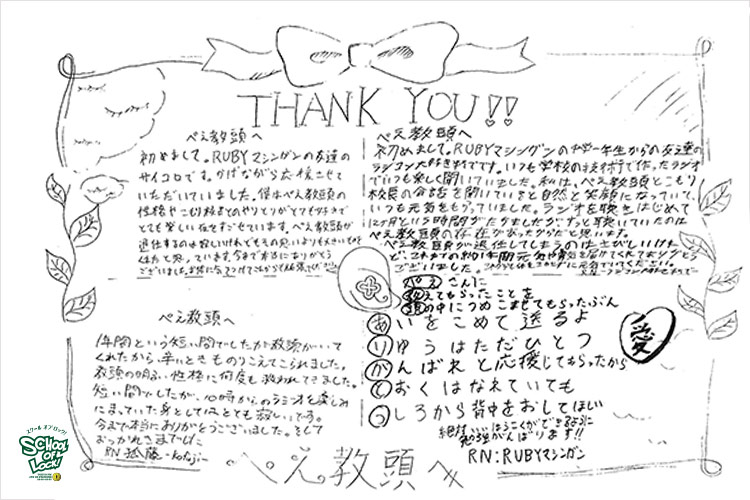 THANK YOU!!
ぺえ教頭へ
初めまして。RUBYマシンガンの友達の
サイコロです。かげながら応援させて
いただいていました。僕はぺえ教頭の
性格やこもり校長とのやりとりがとても好きで
とても楽しい夜をすごせています。ぺえ教頭が
退任するのは寂しいけれど
ぺえ教頭へ
初めまして。RUBYマシンガンの中学一年生からの友達の
ラジコン大好き科です。いつも学校の技術で作ったラジオ
でいつも楽しく聞いていました。私は、ぺえ教頭とこもり
校長の会話を聞いていると自然と笑顔になっていて、
いつも元気をもらっていました。ラジオを聴きはじめて
ぺえ教頭の存在があったからだと思います。
ぺえ教頭が退任してしまうのはさびしいけれ
ど、これまでの約1年間元気や勇気を届けてくれてありがとう
ございました。
ぺえさんに
教えてもらったことを
頭の中につめこませてもらったぶん
あいをこめて送るよ
りゆうはただひとつ
がんばれと応援してもらったから
とおくはなれていても
うしろから背中をおしてほしい
絶対いいはうこくができるように
勉強がんばります!!
RN:RUBYマシンガン
愛
ぺえ教頭へ
1年間という短い間でしたが教頭がいて
くれたから、辛いときものりこえてこられました。
教頭の明るい性格に何度も救われてきました。
短い間でしたが、10時からのラジオを楽しみ
にまっていた身としてはとても寂しいです。
今まで本当にありがとうございました。そして
おつかれさまでした
RN 狐藤
ぺえ教頭へ
スクールオブロック!
SCHOOL
OF
LOCK!